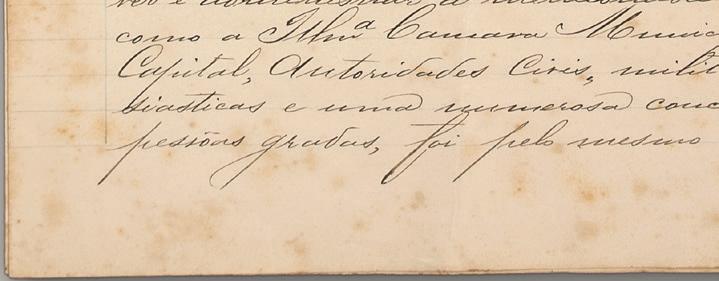 como a Illmª Camara Munic
Capital, Autoridades Civis, milit
siasticas e uma numerosa conc
pessôas gradas, foi pelo mesmo